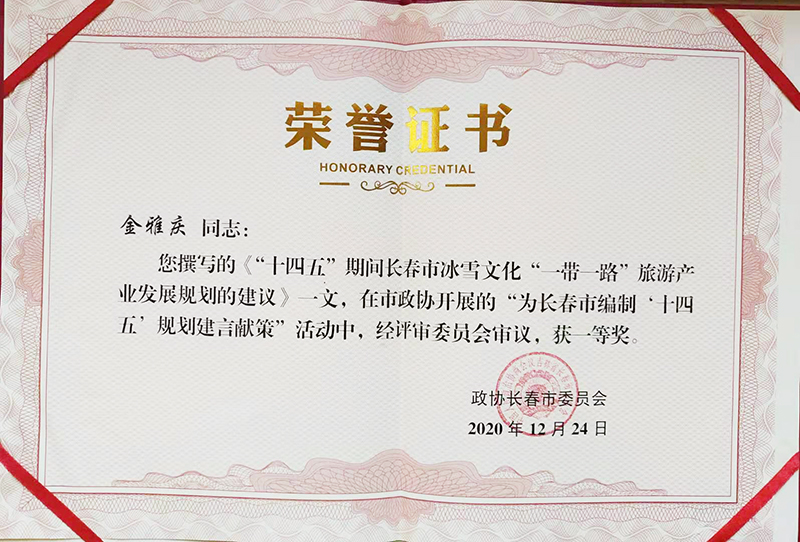 荣誉证书
HONORARY CREDENTIAL
金雅庆 同志：
您撰写的《“十四五”期间长春市冰雪文化“一带一路”旅游产
业发展规划的建议》一文，在市政协开展的“为长春市编制‘十四
五’规划建言献策”活动中，经评审委员会审议，获一等奖。
政协长春市委员会
2020 年 12 月 24 日